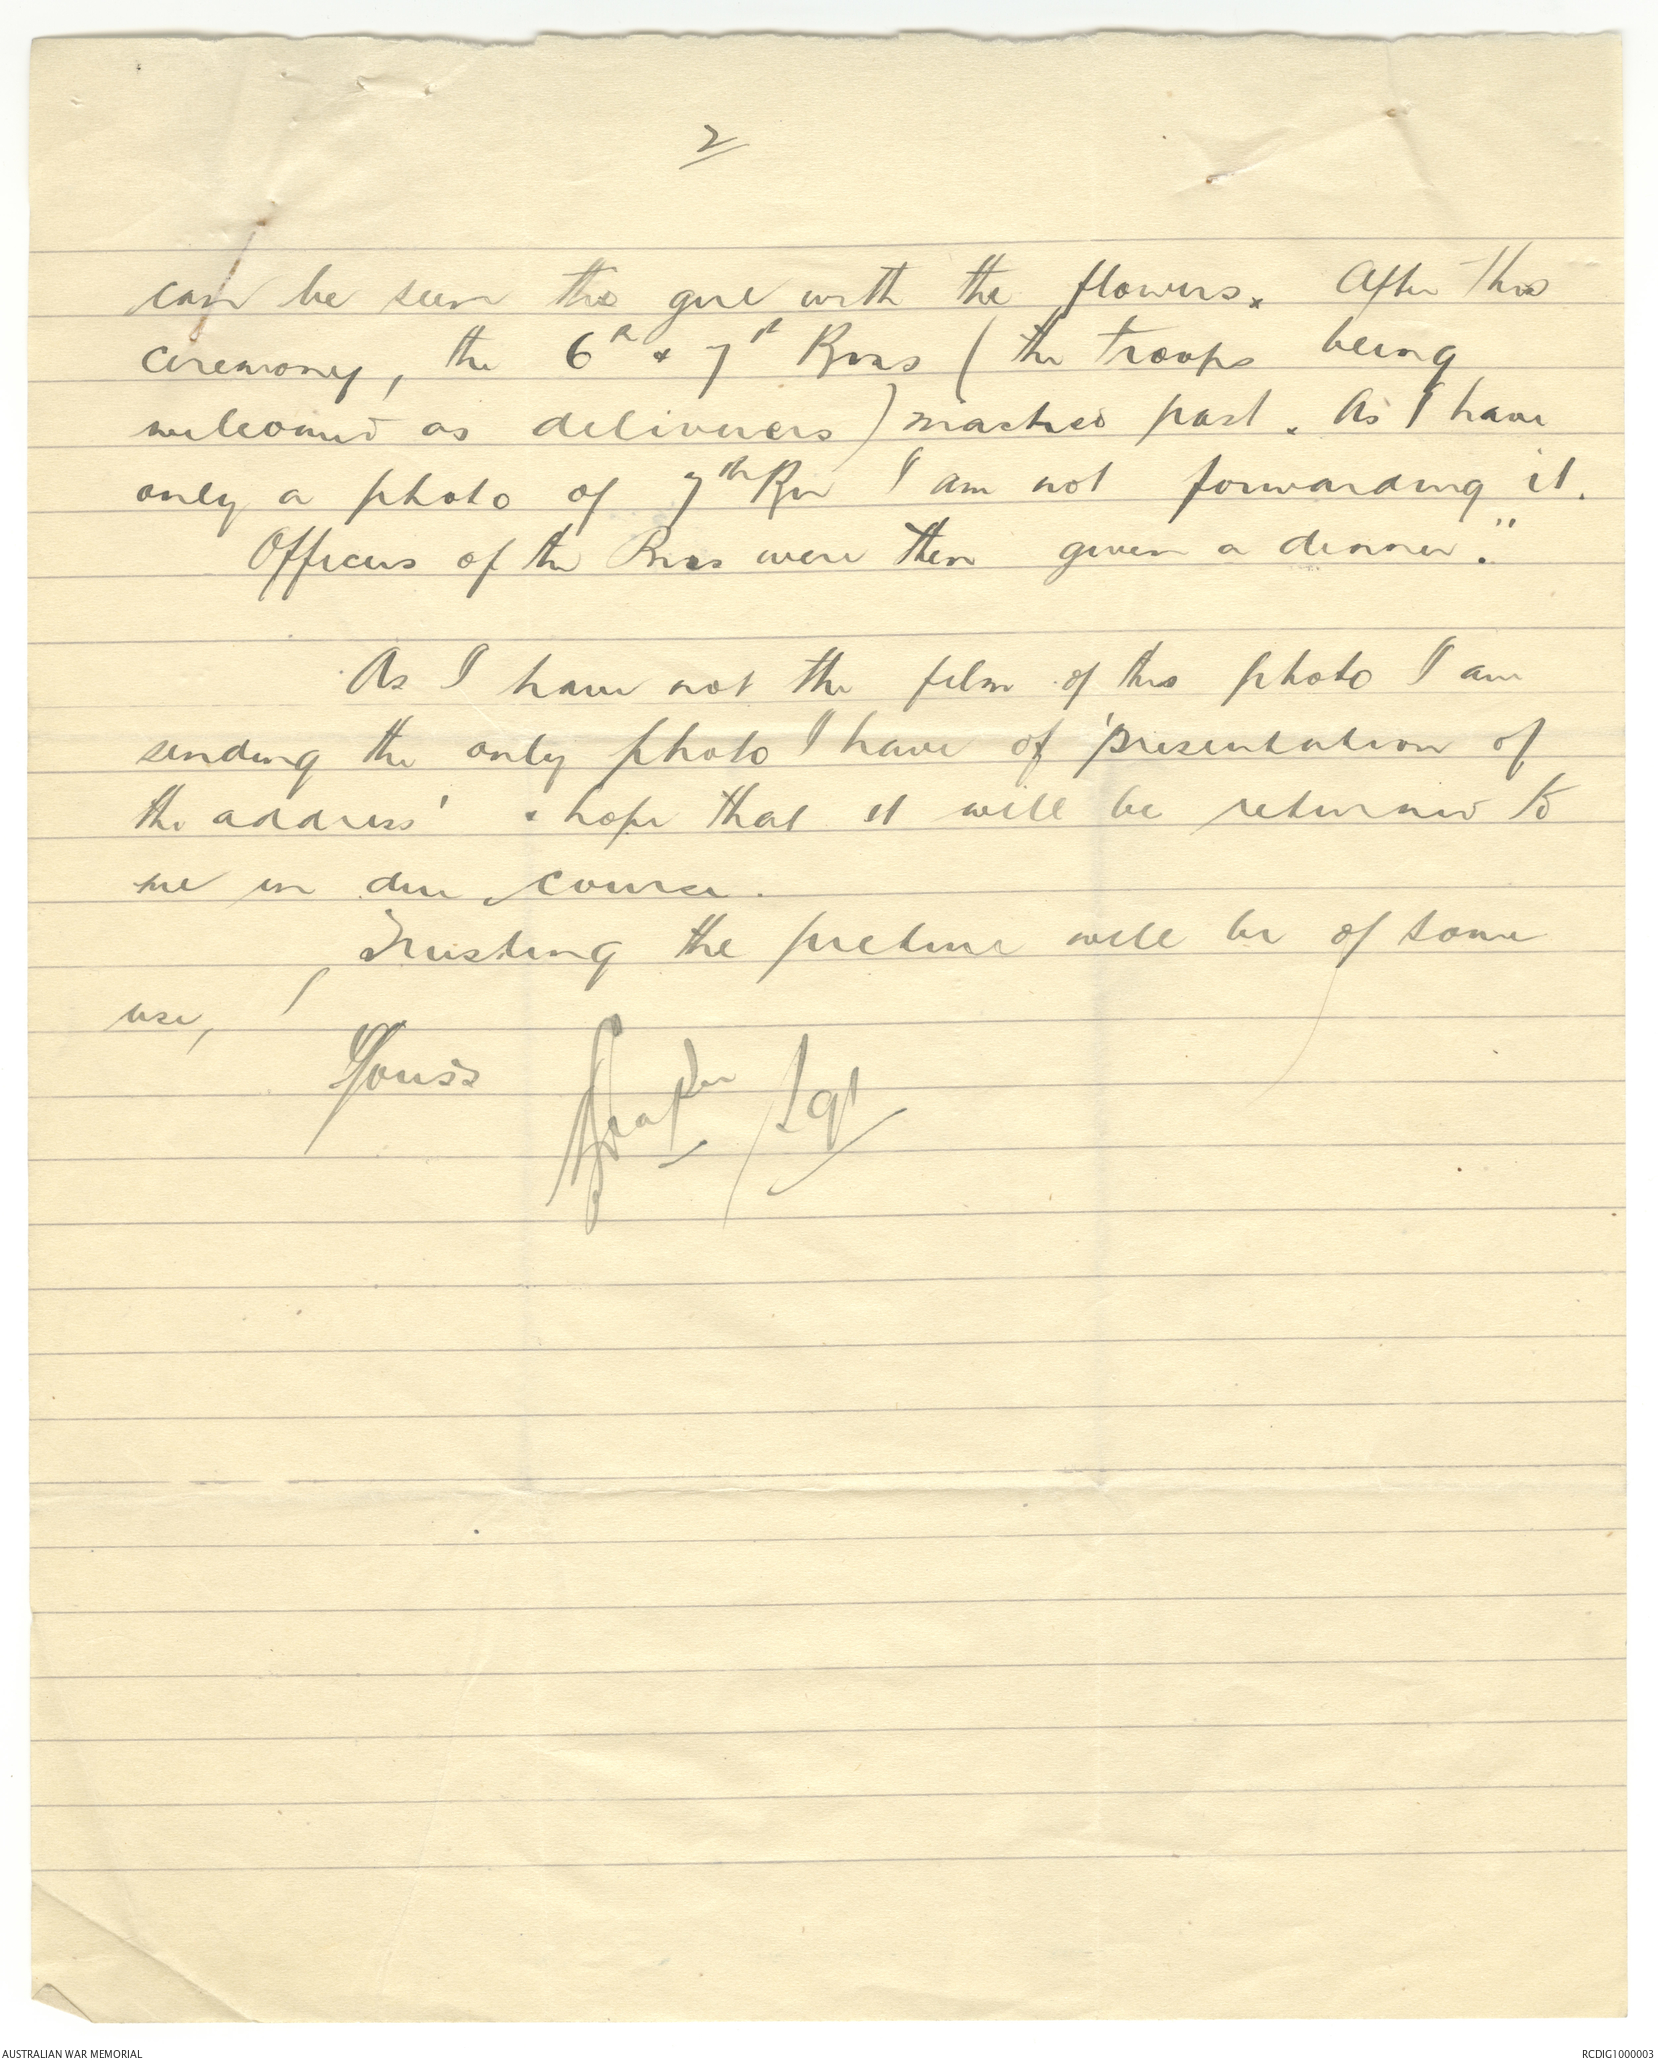 2
can be seen the girl with the flowers. After this
ceremony, the 6th & 7th Bns (the troops being
welcomed as deliverers) marched past. As I have
only a photo of 7th Bn I am not forwarding it.
Officers of the Bns were then given a dinner."
As I have not the film of this photo I am
sending the only photo I have of 'presentation of
the address' & hope that it will be returned to
me in due course.
Trusting the picture will be of some
use,
Yours
Draper Sgt
AUSTRALIAN WAR MEMORIAL
RCDIG1000003